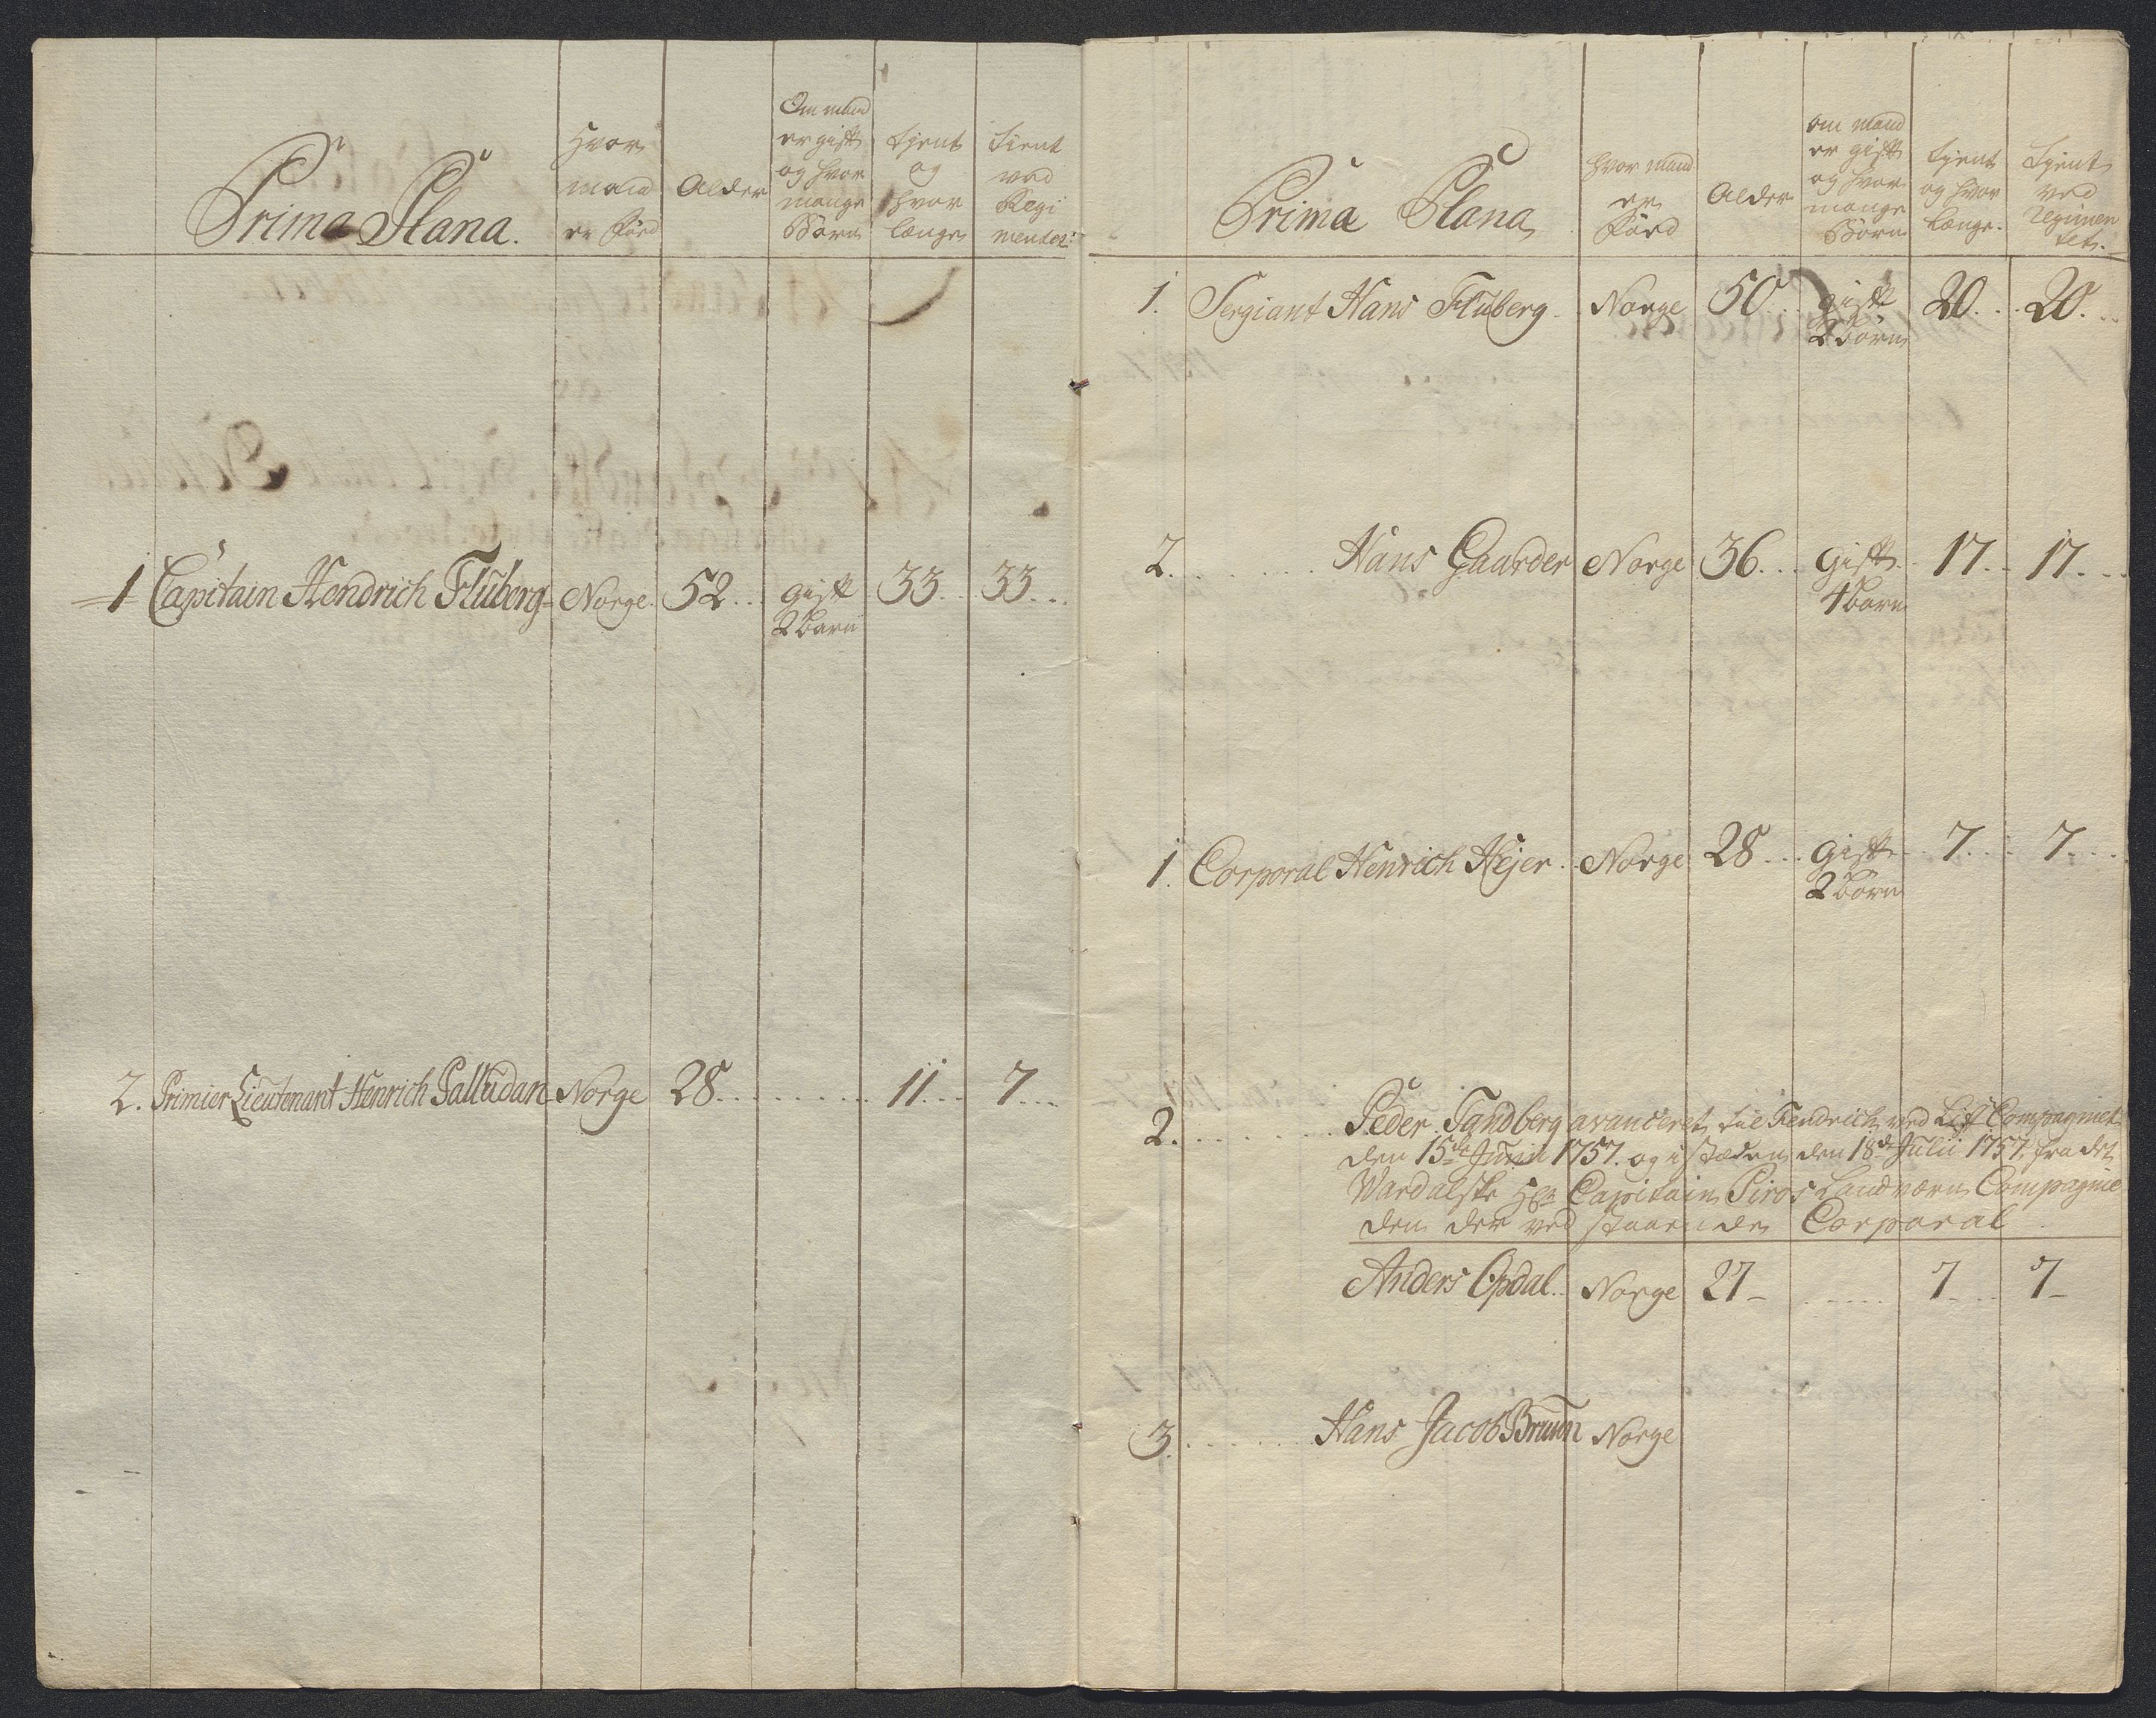 Prima Plana.
Hvor mand er Fød
Alder
Om mand er gift og hvor mange Børn
tjent og hvor længe
tient ved Regimentet:
1 Capitain Hendrich Fluberg Norge 52... gift 33.. 33...
2 barn
2. Primier Lieutenant Henrich Palludan Norge 28........ 11... 7...
Prima Plana
hvor mand er Fød
Alder
om mand er gift og hvor mange Børn
tjent og hvor længe.
tjent ved Regimentet.
1. Sergiant Hans Fluberg. Norge 50.. gift 20... 20...
2 børn
2. Hans Gaarder Norge 36... gift.. 17.. 17...
4 børn
1. Corporal Henrich Hejer. Norge 28... gift 7... 7...
2 børn
2. Peder Sandberg avanceret til Fendrich ved Lif Compagniet
den 15de Junii 1757. og i stæden den 18de Julii 1757. fra det
Wærdalske Capitain Piros Landværn Compagnie
den der ved staaende Corporal.
Anders Opdal.. Norge 27 - ..... 7... 7 -
3. Hans Jacob Bruun Norge